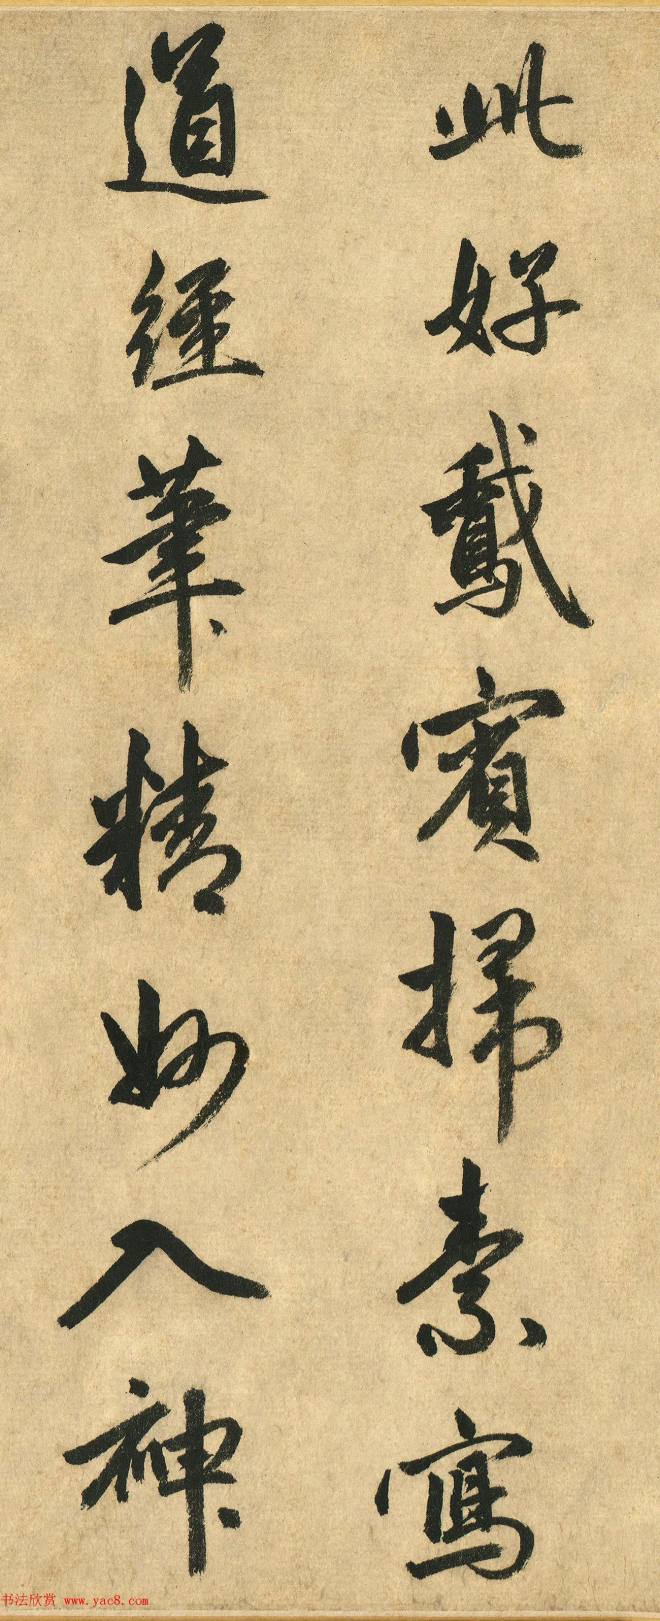 此好鵞賓掃素寫
道經筆精妙入神
书法欣赏 www.yac8.com